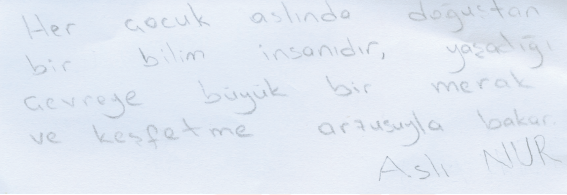 Her çocuk aslında doğuştan
bir bilim insanıdır, yaşadığı
çevreye büyük bir merak
ve keşfetme arzusuyla bakar.
Aslı NUR